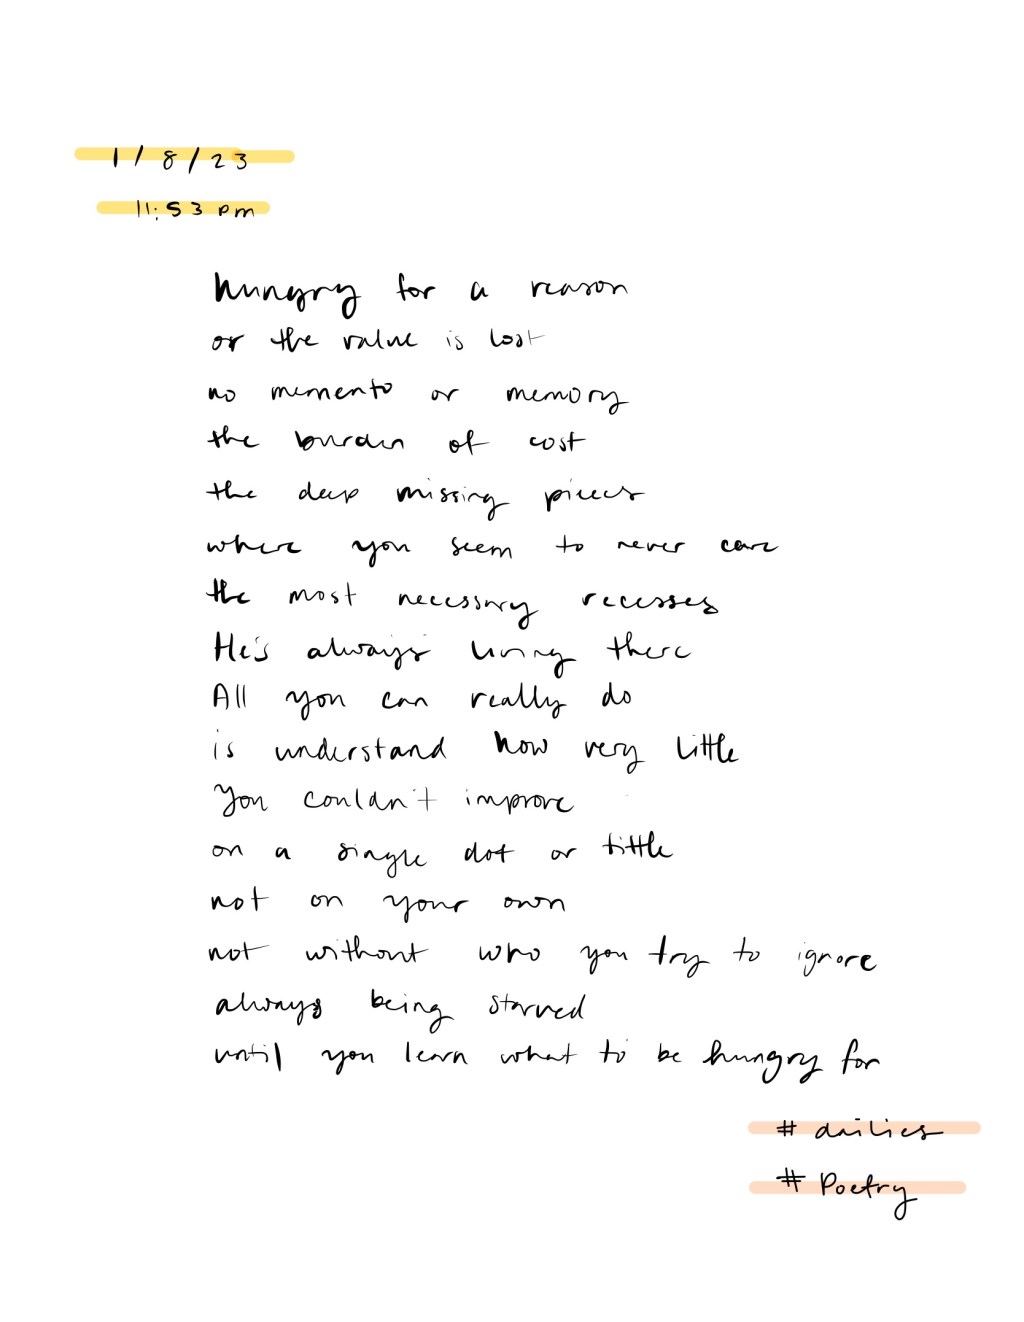 1/8/23
11:53 pm
hungry for a reason
or the value is lost
no memento or memory
the burden of cost
the deep missing pieces
where you seem to never care
the most necessary recesses
He's always living there
All you can really do
is understand how very little
You couldn't improve
on a single dot or tittle
not on your own
not without who you try to ignore
always being starved
until you learn what to be hungry for
# dailies
# Poetry